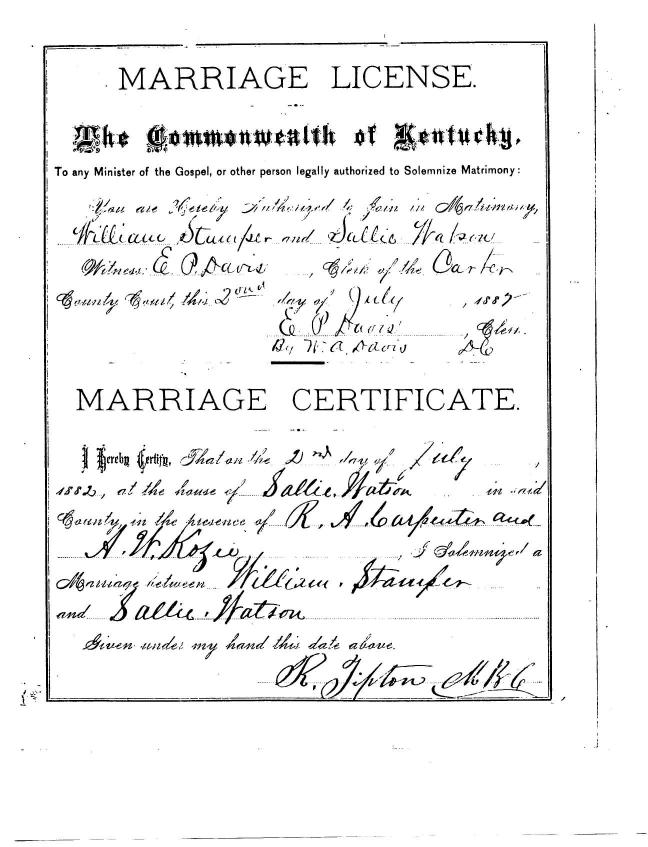 MARRIAGE LICENSE.
The Commonwealth of Kentucky.
To any Minister of the Gospel, or other person legally authorized to Solemnize Matrimony:
You are Hereby Authorized to Join in Matrimony,
William Stamper and Sallie Watson
Witness: E P. Davis, Clerk of the Carter
County Court, this 2ond day of July, 1882
E P Davis, Clerk.
By W. A. Davis DC
MARRIAGE CERTIFICATE.
I Hereby Certify, That on the 2nd day of July,
1882, at the house of Sallie. Watson in said
County, in the presence of R. A. Carpenter and
A. W. Kozee, I Solemnized a
Marriage between William. Stamper
and Sallie. Watson
Given under my hand this date above.
R. Tipton